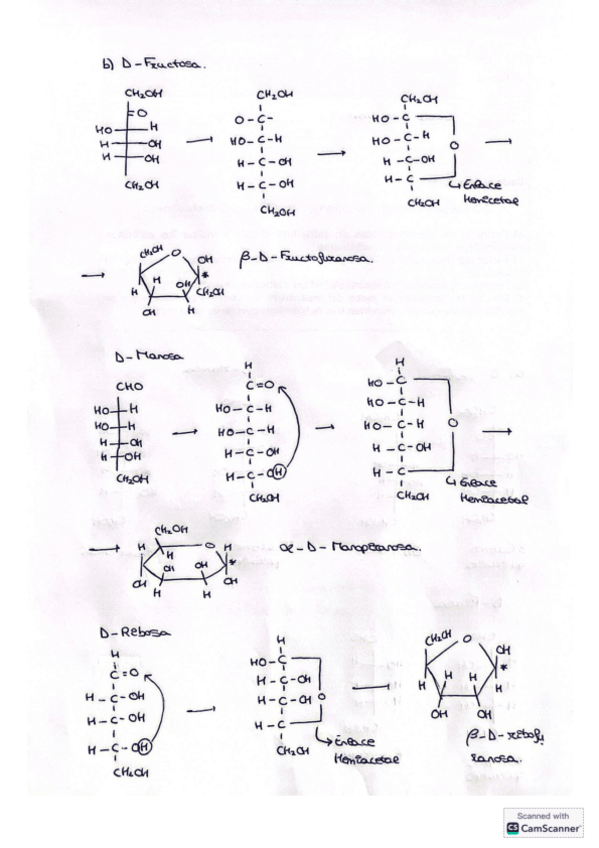 b) D-Fructosa.
CH₂OH
=O
HO H
H OH
H OH
CH₂OH
CH₂OH
O-C-
HO-C-H
H-C-OH
H-C-OH
CH₂OH
CH₂OH
HO-C
HO-C-H
H-C-OH
H-C
CH₂OH
O
Enlace
Hemicetal
CH₂OH O OH
H H OH * CH₂OH
OH H
β-D-Fructofuranosa.
D-Manosa
CHO
HO H
HO H
H OH
H OH
CH₂OH
H
C=O
HO-C-H
HO-C-H
H-C-OH
H-C-OH
CH₂OH
H
HO-C
HO-C-H
HO-C-H
H-C-OH
H-C
CH₂OH
O
Enlace
Hemiacetal
CH₂OH
H O H
H OH OH *
OH H H OH
α-D-Manopiranosa.
D-Ribosa
H
C=O
H-C-OH
H-C-OH
H-C-OH
CH₂OH
H
HO-C
H-C-OH
H-C-OH
H-C
CH₂OH
O
Enlace
Hemiacetal
CH₂OH O OH
H H H H *
OH OH
β-D-ribofu
ranosa.
Scanned with
CS CamScanner